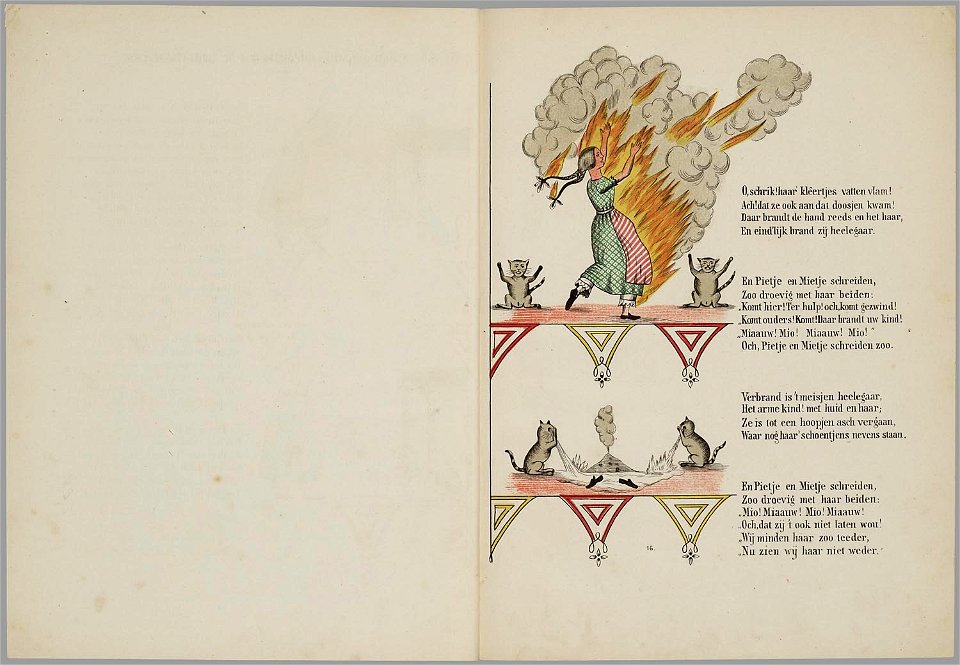 O, schrik! haar kleertjes vatten vlam!
Ach! dat ze ook aan dat doosjen kwam!
Daar brandt de hand reeds en het haar,
En eind'lijk brand zij heelegaar.
En Pietje en Mietje schreiden,
Zoo droevig met haar beiden:
„Komt hier! Ter hulp! och, komt gezwind!
„Komt ouders! Komt! Daar brandt uw kind!
„Miaauw! Mio! Miaauw! Mio!"
Och, Pietje en Mietje schreiden zoo.
Verbrand is 't meisjen heelegaar,
Het arme kind! met huid en haar;
Ze is tot een hoopjen asch vergaan,
Waar nog haar' schoentjens nevens staan.
En Pietje en Mietje schreiden,
Zoo droevig met haar beiden:
„Mio! Miaauw! Mio! Miaauw!
„Och, dat zij 't ook niet laten wou!
„Wij minden haar zoo teeder,
„Nu zien wij haar niet weder."
16.